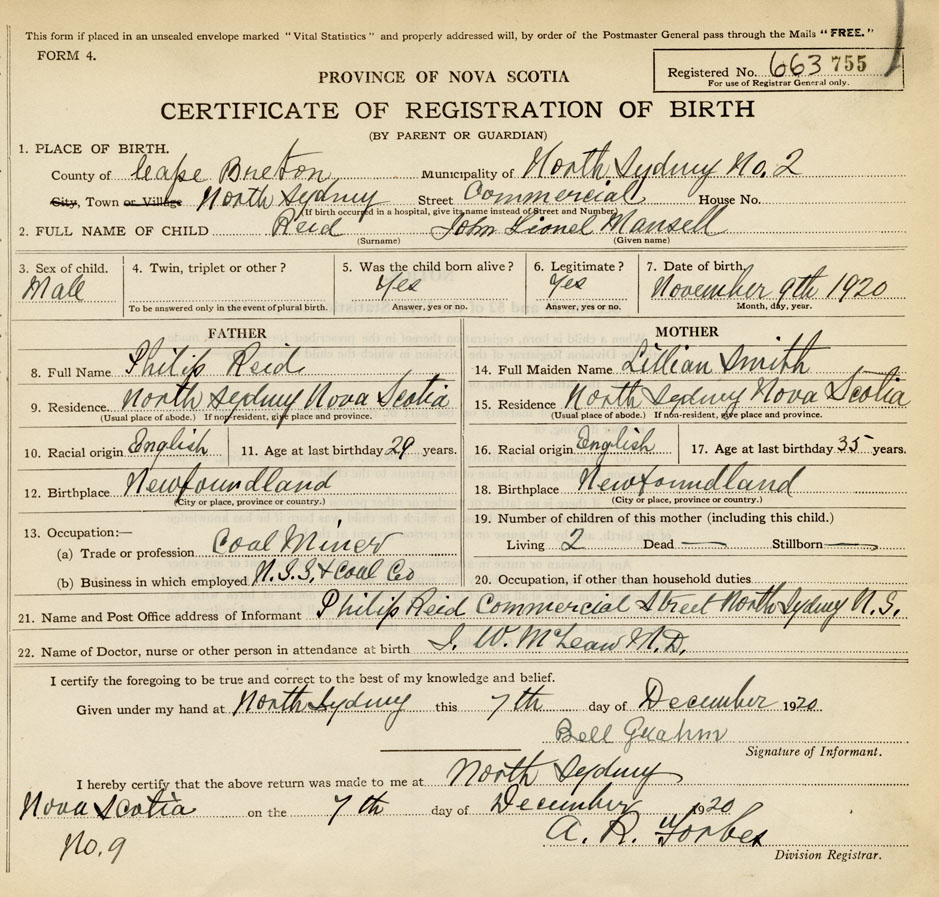 This form if placed in an unsealed envelope marked "Vital Statistics" and properly addressed will, by order of the Postmaster General pass through the Mails "FREE."
FORM 4.
Registered No. 663 755
For use of Registrar General only.
PROVINCE OF NOVA SCOTIA
CERTIFICATE OF REGISTRATION OF BIRTH
(BY PARENT OR GUARDIAN)
1. PLACE OF BIRTH.
County of Cape Breton Municipality of North Sydney No. 2
City, Town or Village North Sydney Street Commercial House No.
(If birth occurred in a hospital, give its name instead of Street and Number)
2. FULL NAME OF CHILD Reid John Lionel Mansell
(Surname) (Given name)
3. Sex of child. 4. Twin, triplet or other ? 5. Was the child born alive ? 6. Legitimate ? 7. Date of birth
Male Yes Yes November 9th 1920
To be answered only in the event of plural birth. Answer, yes or no. Answer, yes or no. Month, day, year.
FATHER
8. Full Name Philip Reid
9. Residence North Sydney Nova Scotia
(Usual place of abode.) If non-resident, give place and province.
10. Racial origin English 11. Age at last birthday 29 years.
12. Birthplace Newfoundland
(City or place, province or country.)
13. Occupation:—
(a) Trade or profession Coal Miner
(b) Business in which employed N.S.S. & Coal Co
MOTHER
14. Full Maiden Name Lillian Smith
15. Residence North Sydney Nova Scotia
(Usual place of abode.) If non-resident, give place and province.
16. Racial origin English 17. Age at last birthday 35 years.
18. Birthplace Newfoundland
(City or place, province or country.)
19. Number of children of this mother (including this child.)
Living 2 Dead — Stillborn —
20. Occupation, if other than household duties
21. Name and Post Office address of Informant Philip Reid Commercial Street North Sydney N.S.
22. Name of Doctor, nurse or other person in attendance at birth W. McLean M.D.
I certify the foregoing to be true and correct to the best of my knowledge and belief.
Given under my hand at North Sydney this 7th day of December 1920
Bell
Signature of Informant.
I hereby certify that the above return was made to me at North Sydney
Nova Scotia on the 7th day of December 1920
A. R. Forbes
No. 9
Division Registrar.